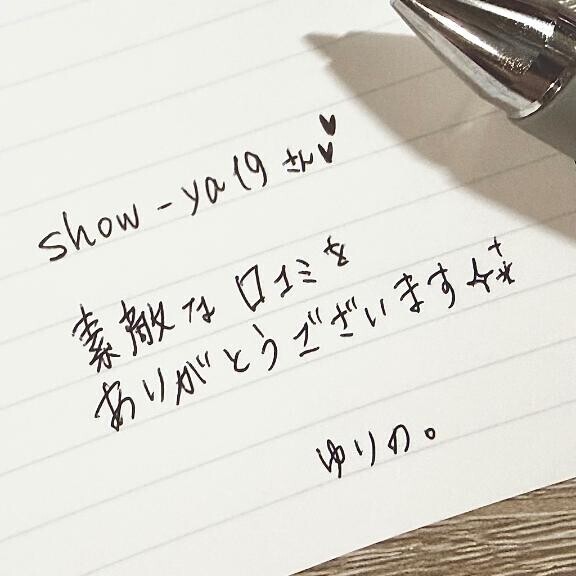 show-ya19さん♥♥
素敵な口コミを
ありがとうございます☆
ゆりの。